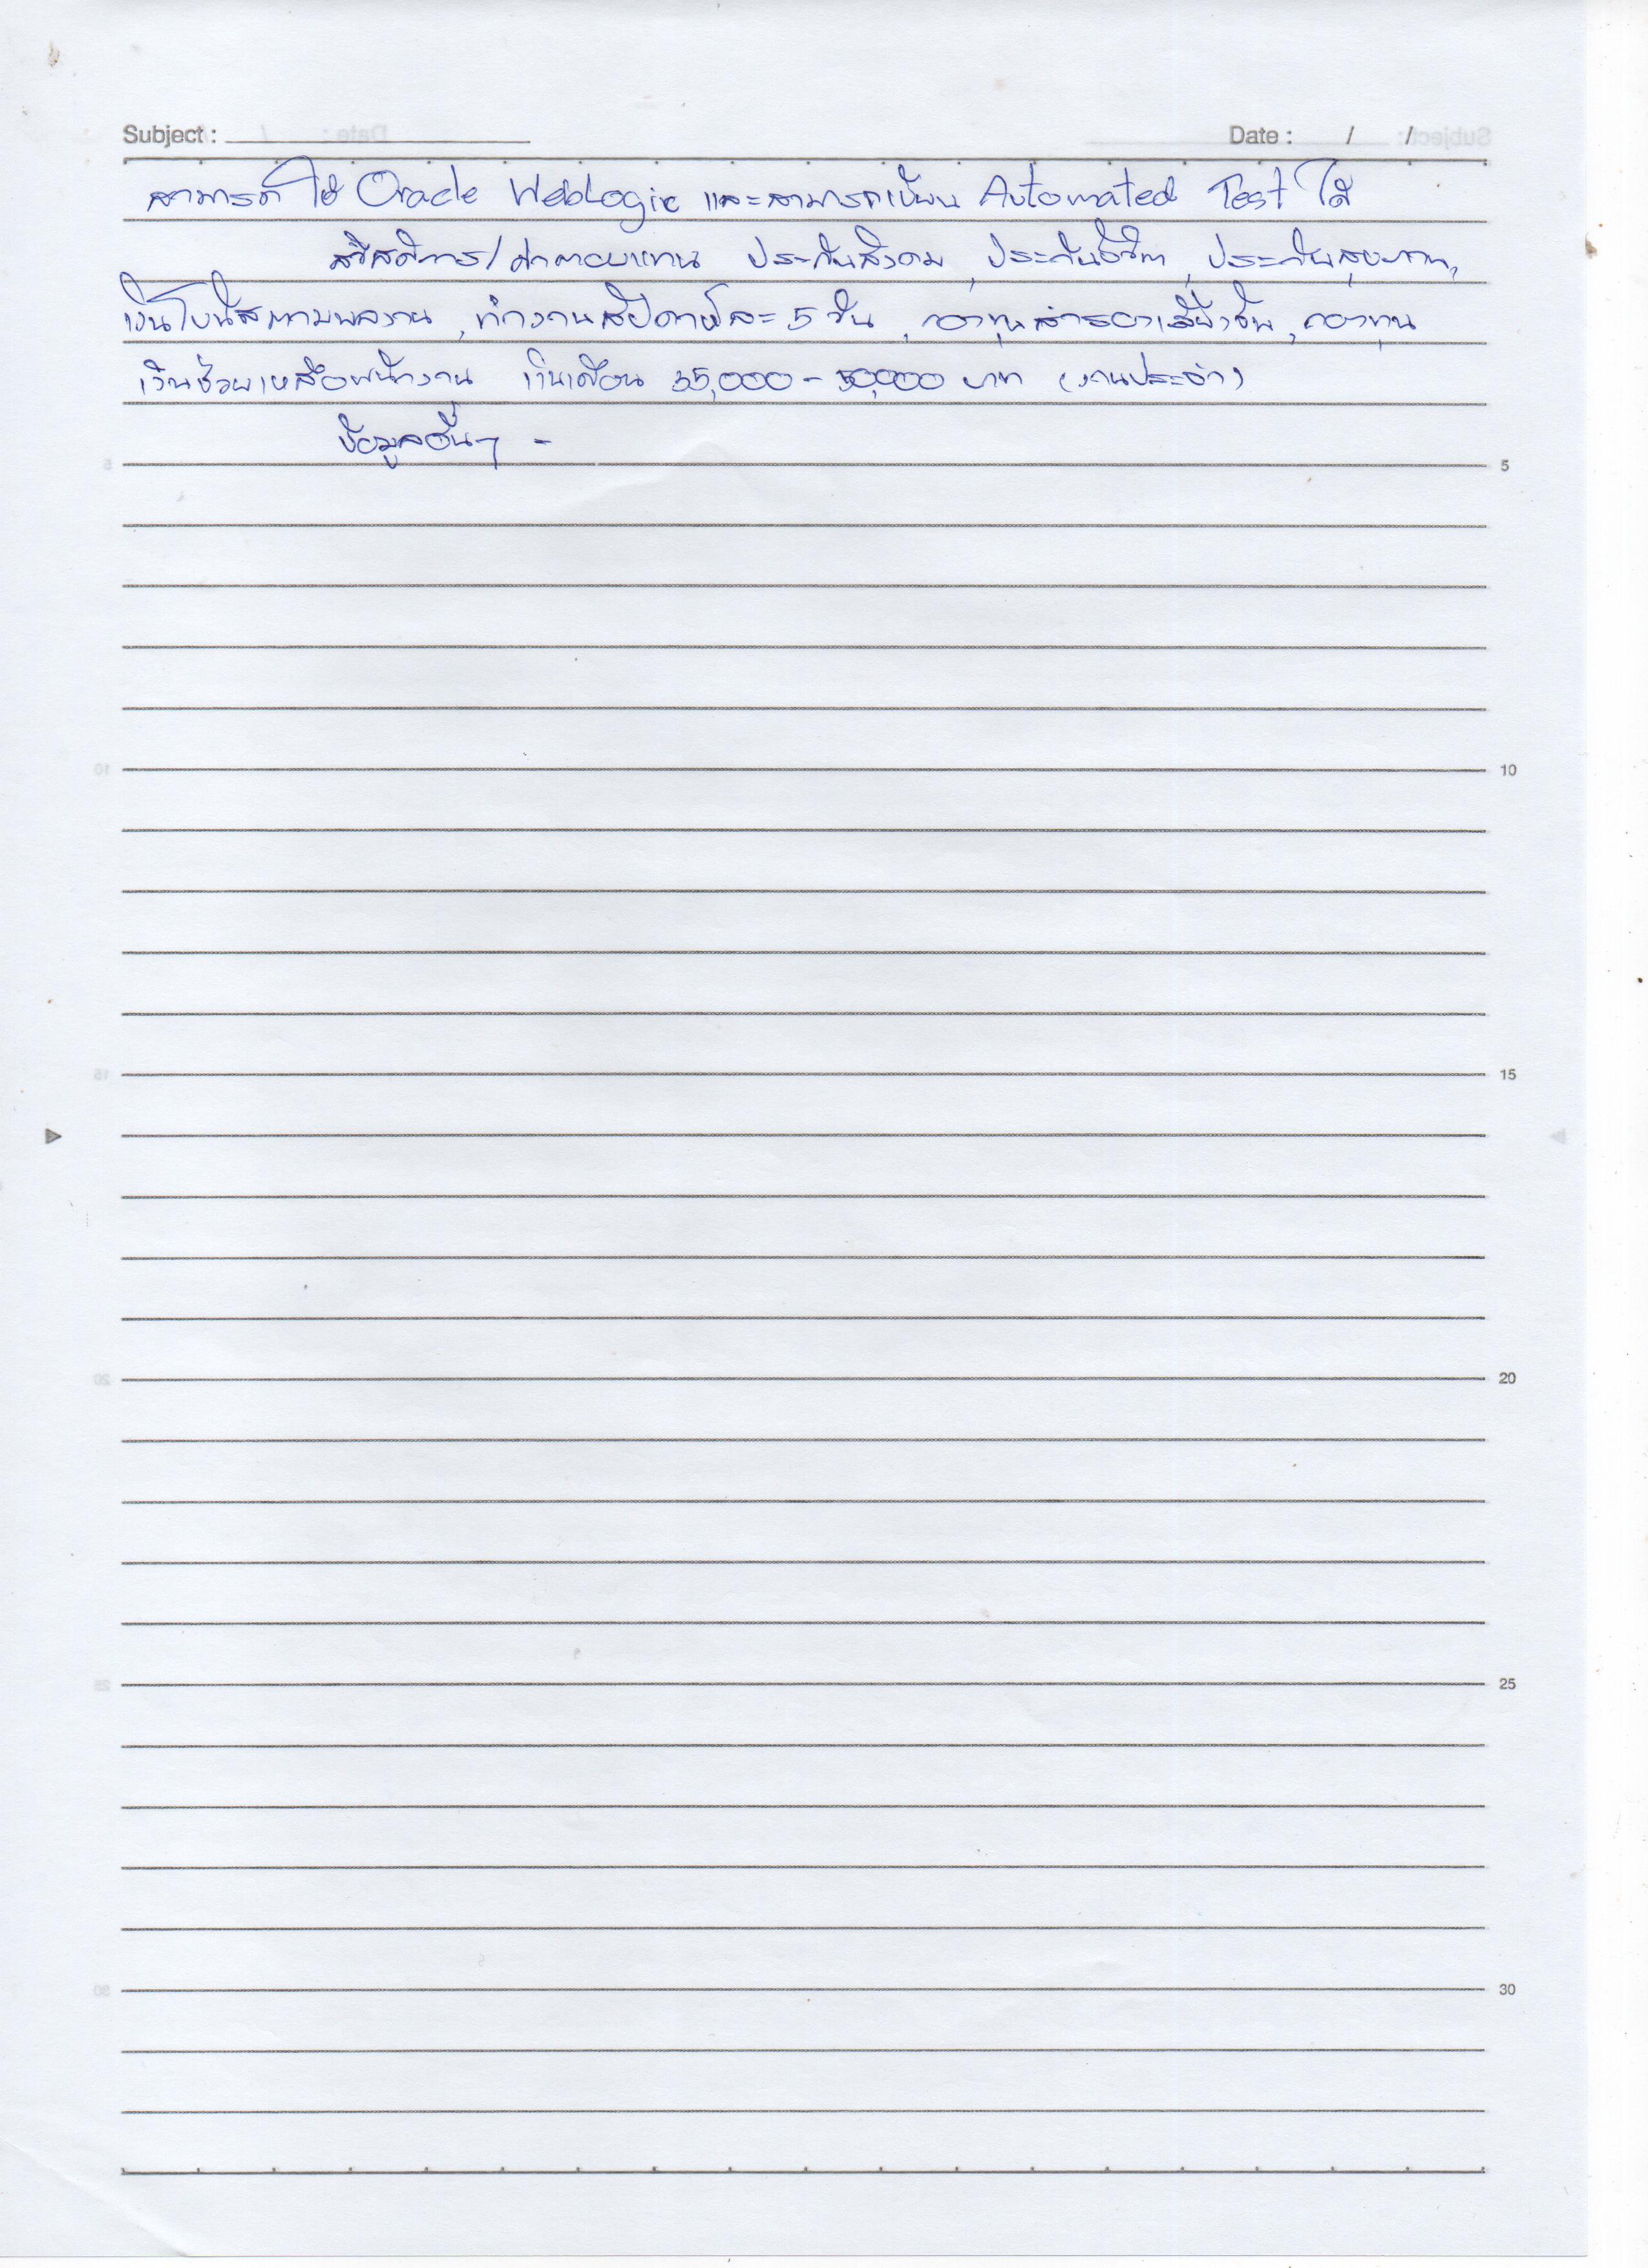 Subject : Date : / /
สามารถ ใช้ Oracle WebLogic และสามารถเขียน Automated Test ได้
สวัสดิการ/ค่าตอบแทน ประกันสังคม, ประกันชีวิต, ประกันสุขภาพ,
เงินโบนัสตามผลงาน, ทำงานสัปดาห์ละ 5 วัน, กองทุนสำรองเลี้ยงชีพ, กองทุน
เงินช่วยเหลือพนักงาน เงินเดือน 35,000 - 50,000 บาท (งานประจำ)
ข้อมูลอื่นๆ -
5
10
15
20
25
30